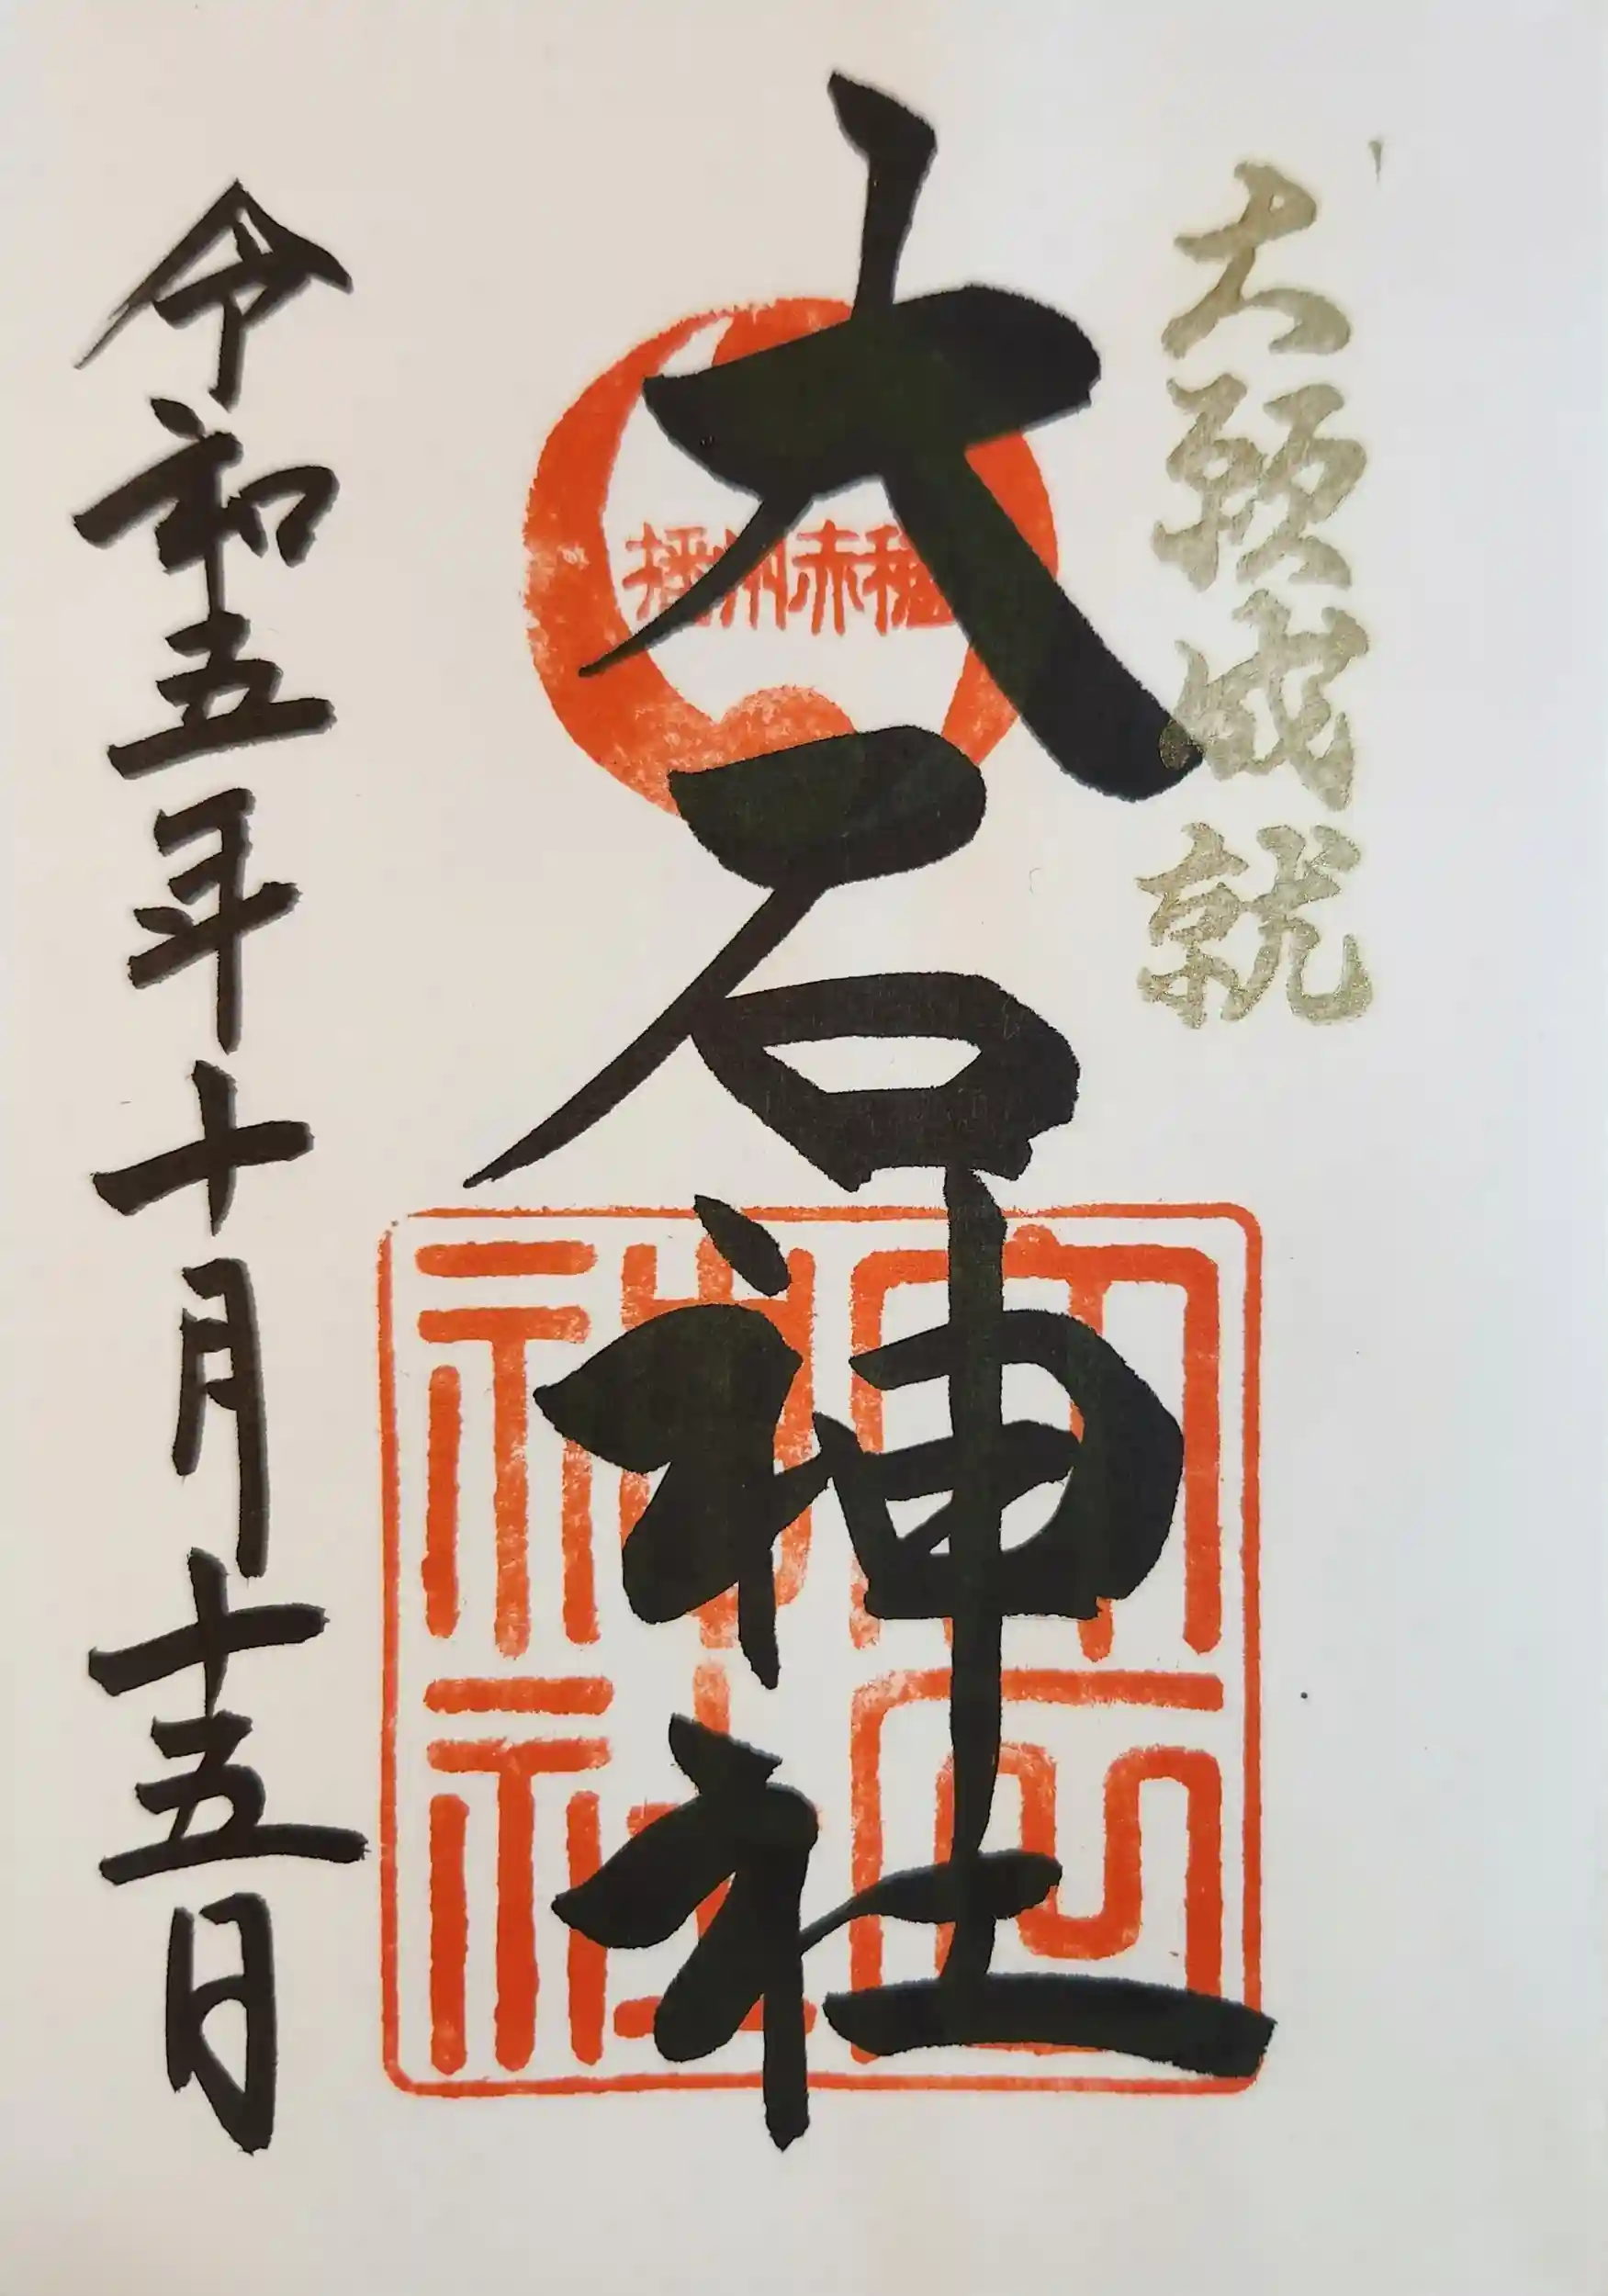 大願成就
大石神社
播州赤穂
大石神社
令和五年十月十五日